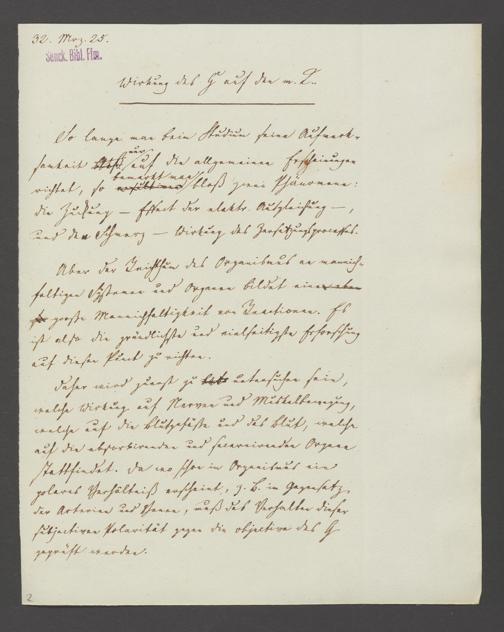 32. Mrz. 25.
Senck. Bibl. Ffm.
Wirkung des G auf den m. K.
So lange man beim Studium seine Aufmerk-
samkeit nur auf die allgemeinen Erscheinungen
richtet, so bemerkt man bloß zwei Phänomene:
die Zuckung — Effect der elektr. Ausgleichung —,
und den Schmerz — Wirkung des Zersetzungsprocesses.
Aber der Reichthum des Organismus an mannich-
faltigen Systemen und Organen bildet eine
große Mannichfaltigkeit von Reactionen. Es
ist also die gründlichste und vielseitigste Erforschung
auf diesen Punct zu richten.
Daher wird zuerst zu untersuchen sein,
welche Wirkung auf Nerven und Muskelbewegung,
welche auf die Blutgefäße und das Blut, welche
auf die absorbirenden und secernirenden Organe
stattfindet. Da wo schon im Organismus ein
polares Verhältniß erscheint, z. B. im Gegensatz
der Arterien und Venen, muß das Verhalten dieser
subjectiven Polarität gegen die objective des G
geprüft werden.
2